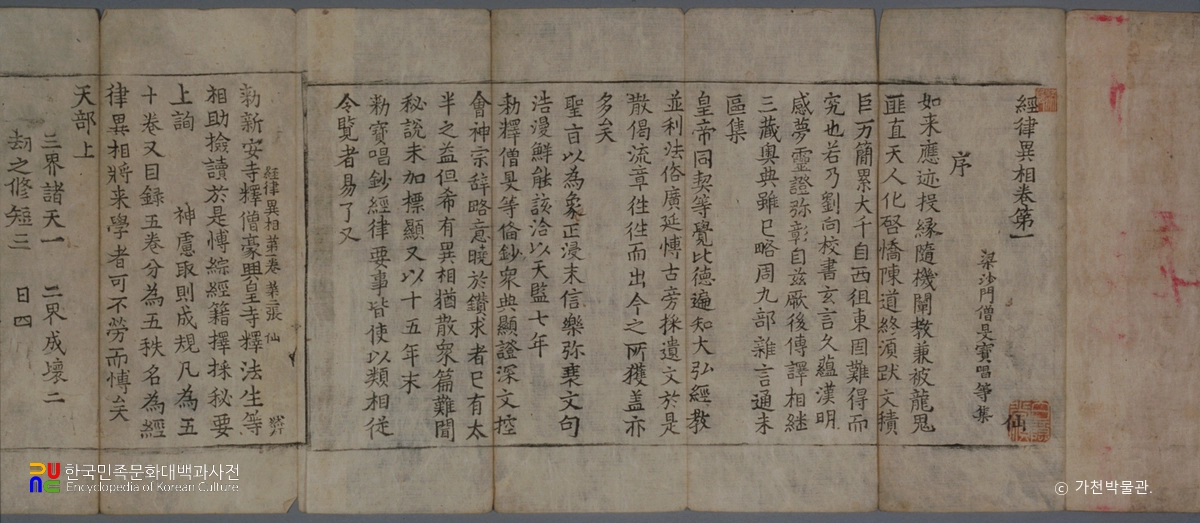 經律異相卷第一
梁沙門僧旻寶唱等集
仙
序
如来應迹投縁隨機闡教兼被龍鬼
匪直天人化啓憍陳道終湏跋文積
巨万簡累大千自西徂東固難得而
究也若乃劉向挍書玄言久蘊漢明
感夢靈證弥彰自兹厥後傳譯相継
三藏奥典雖已略周九部雜言通未
區集
皇帝同契等覺比德遍知大弘經教
並利法俗廣延愽古旁採遺文於是
散偈流章徃徃而出今之所獲盖亦
多矣
聖旨以為象正浸末信樂弥衰文句
浩漫鮮能該洽以天監七年
勑釋僧旻等俻鈔衆典顯證深文控
會神宗辞略意曉於鑽求者已有太
半之益但希有異相猶散衆篇難聞
秘說未加標顯又以十五年末
勑寶唱鈔經律要事皆使以類相從
令覽者易了又
經律異相第一卷 第二張 仙
勑新安寺釋僧豪興皇寺釋法生等
相助撿讀於是愽綜經籍擇採秘要
上詢 神慮取則成規凡為五
十卷又目録五卷分為五秩名為經
律異相將来學者可不勞而愽矣
天部上
三界諸天一 二界成壞二
劫之修短三 日四
한국민족문화대백과사전
Encyclopedia of Korean Culture
ⓒ 가천박물관.